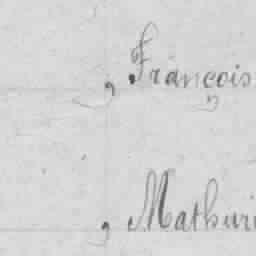 , François
, Mathuri